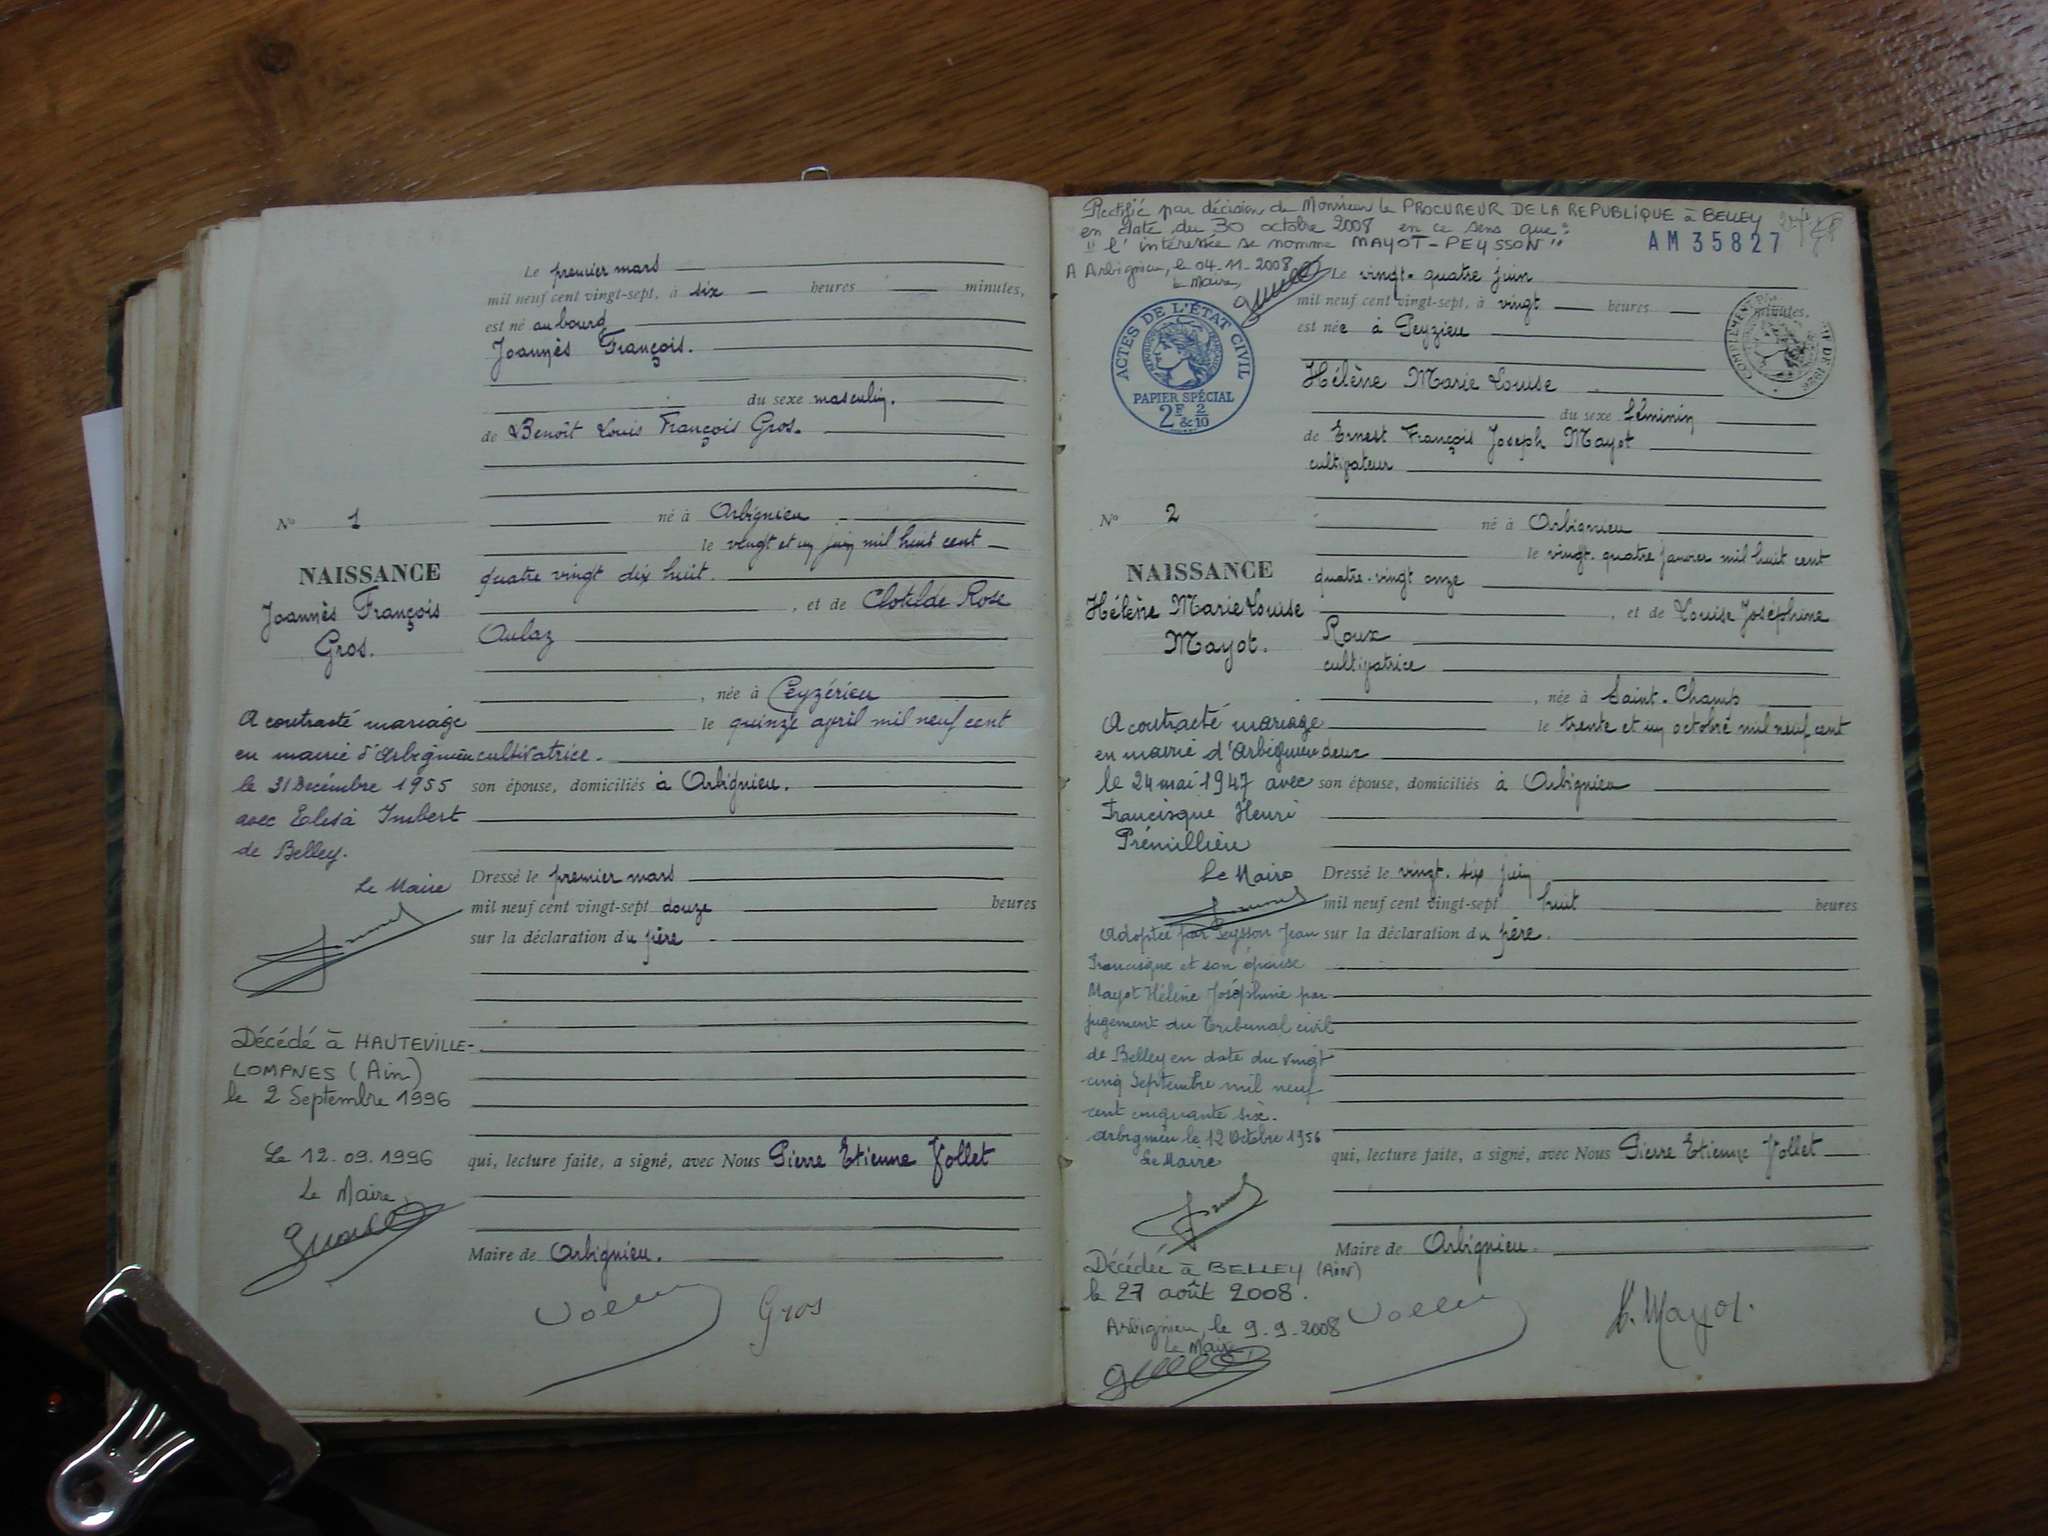 Le premier mars
mil neuf cent vingt-sept, à six heures minutes,
est né au bourg
Joannès François.
du sexe masculin.
de Benoît Louis François Gros.
né à Arbignieu
le vingt et un juin mil huit cent
quatre vingt dix huit.
, et de Clotilde Rose
Aulaz
, née à Ceyzérieu
le quinze avril mil neuf cent
cultivatrice.
son épouse, domiciliés à Arbignieu.
Dressé le premier mars
mil neuf cent vingt-sept douze heures
sur la déclaration du père
qui, lecture faite, a signé, avec Nous Pierre Etienne Vollet
Maire de Arbignieu.
Gros
N° 1
NAISSANCE
Joannès François
Gros.
A contracté mariage
en mairie d'Arbignieu
le 31 Décembre 1955
avec Elisa Imbert
de Belley.
Le Maire
Décédé à HAUTEVILLE-
LOMPNES (Ain)
le 2 Septembre 1996
Le 12.09.1996
Le Maire,
Rectifié par décision de Monsieur le PROCUREUR DE LA REPUBLIQUE à BELLEY
en date du 30 octobre 2008 en ce sens que :
" l'intéressée se nomme MAYOT-PEYSSON "
AM 35827
A Arbignieu, le 04-11-2008
le Maire,
ACTES DE L'ÉTAT CIVIL
PAPIER SPÉCIAL
2F & 2/10
Le vingt-quatre juin
mil neuf cent vingt-sept, à vingt heures minutes,
est née à Peyzieu
Hélène Marie Louise
du sexe féminin
de Ernest François Joseph Mayot
cultivateur
né à Arbignieu
le vingt-quatre janvier mil huit cent
quatre-vingt onze
, et de Louise Joséphine
Roux
cultivatrice
, née à Saint-Champ
le trente et un octobre mil neuf cent
deux
son épouse, domiciliés à Arbignieu
Dressé le vingt-six juin
mil neuf cent vingt-sept huit heures
sur la déclaration du père.
qui, lecture faite, a signé, avec Nous Pierre Etienne Vollet
Maire de Arbignieu.
Mayot.
N° 2
NAISSANCE
Hélène Marie Louise
Mayot.
A contracté mariage
en mairie d'Arbignieu
le 24 mai 1947 avec
Francisque Henri
Prémillieu
Le Maire
Adoptée par Peysson Jean
Francisque et son épouse
Mayot Hélène Joséphine par
jugement du Tribunal civil
de Belley en date du vingt
cinq Septembre mil neuf
cent cinquante six.
Arbignieu le 12 Octobre 1956
Le Maire
Décédée à BELLEY (Ain)
le 27 août 2008.
Arbignieu, le 9-9-2008
Le Maire